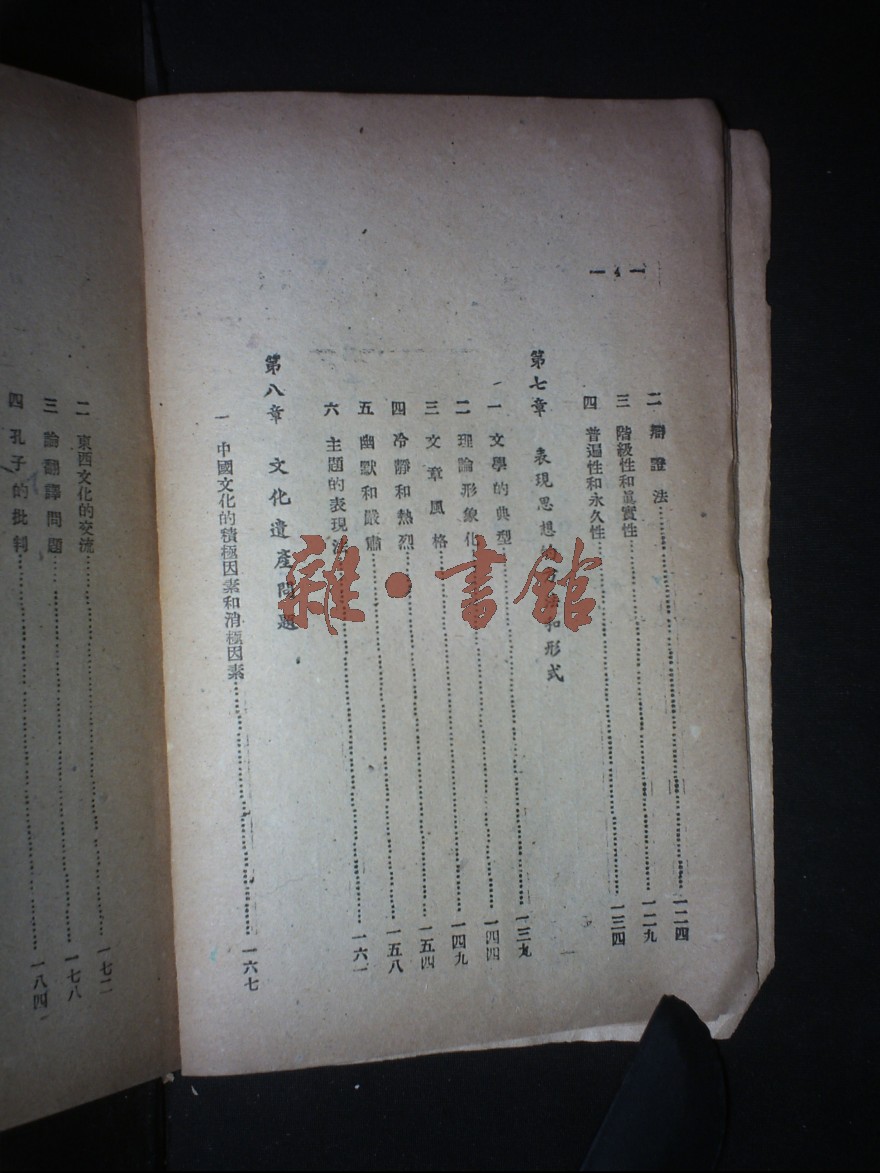 二 辯證法…………一二四
三 階級性和眞實性…………一二九
四 普遍性和永久性…………一三四
第七章 表現思想的方法和形式
一 文學的典型…………一三九
二 理論形象化…………一四四
三 文章風格…………一四九
四 冷靜和熱烈…………一五四
五 幽默和嚴肅…………一五八
六 主題的表現法…………一六一
第八章 文化遺產問題
一 中國文化的積極因素和消極因素…………一六七
二 東西文化的交流…………一七二
三 論翻譯問題…………一七八
四 孔子的批判…………一八四
雜·書館